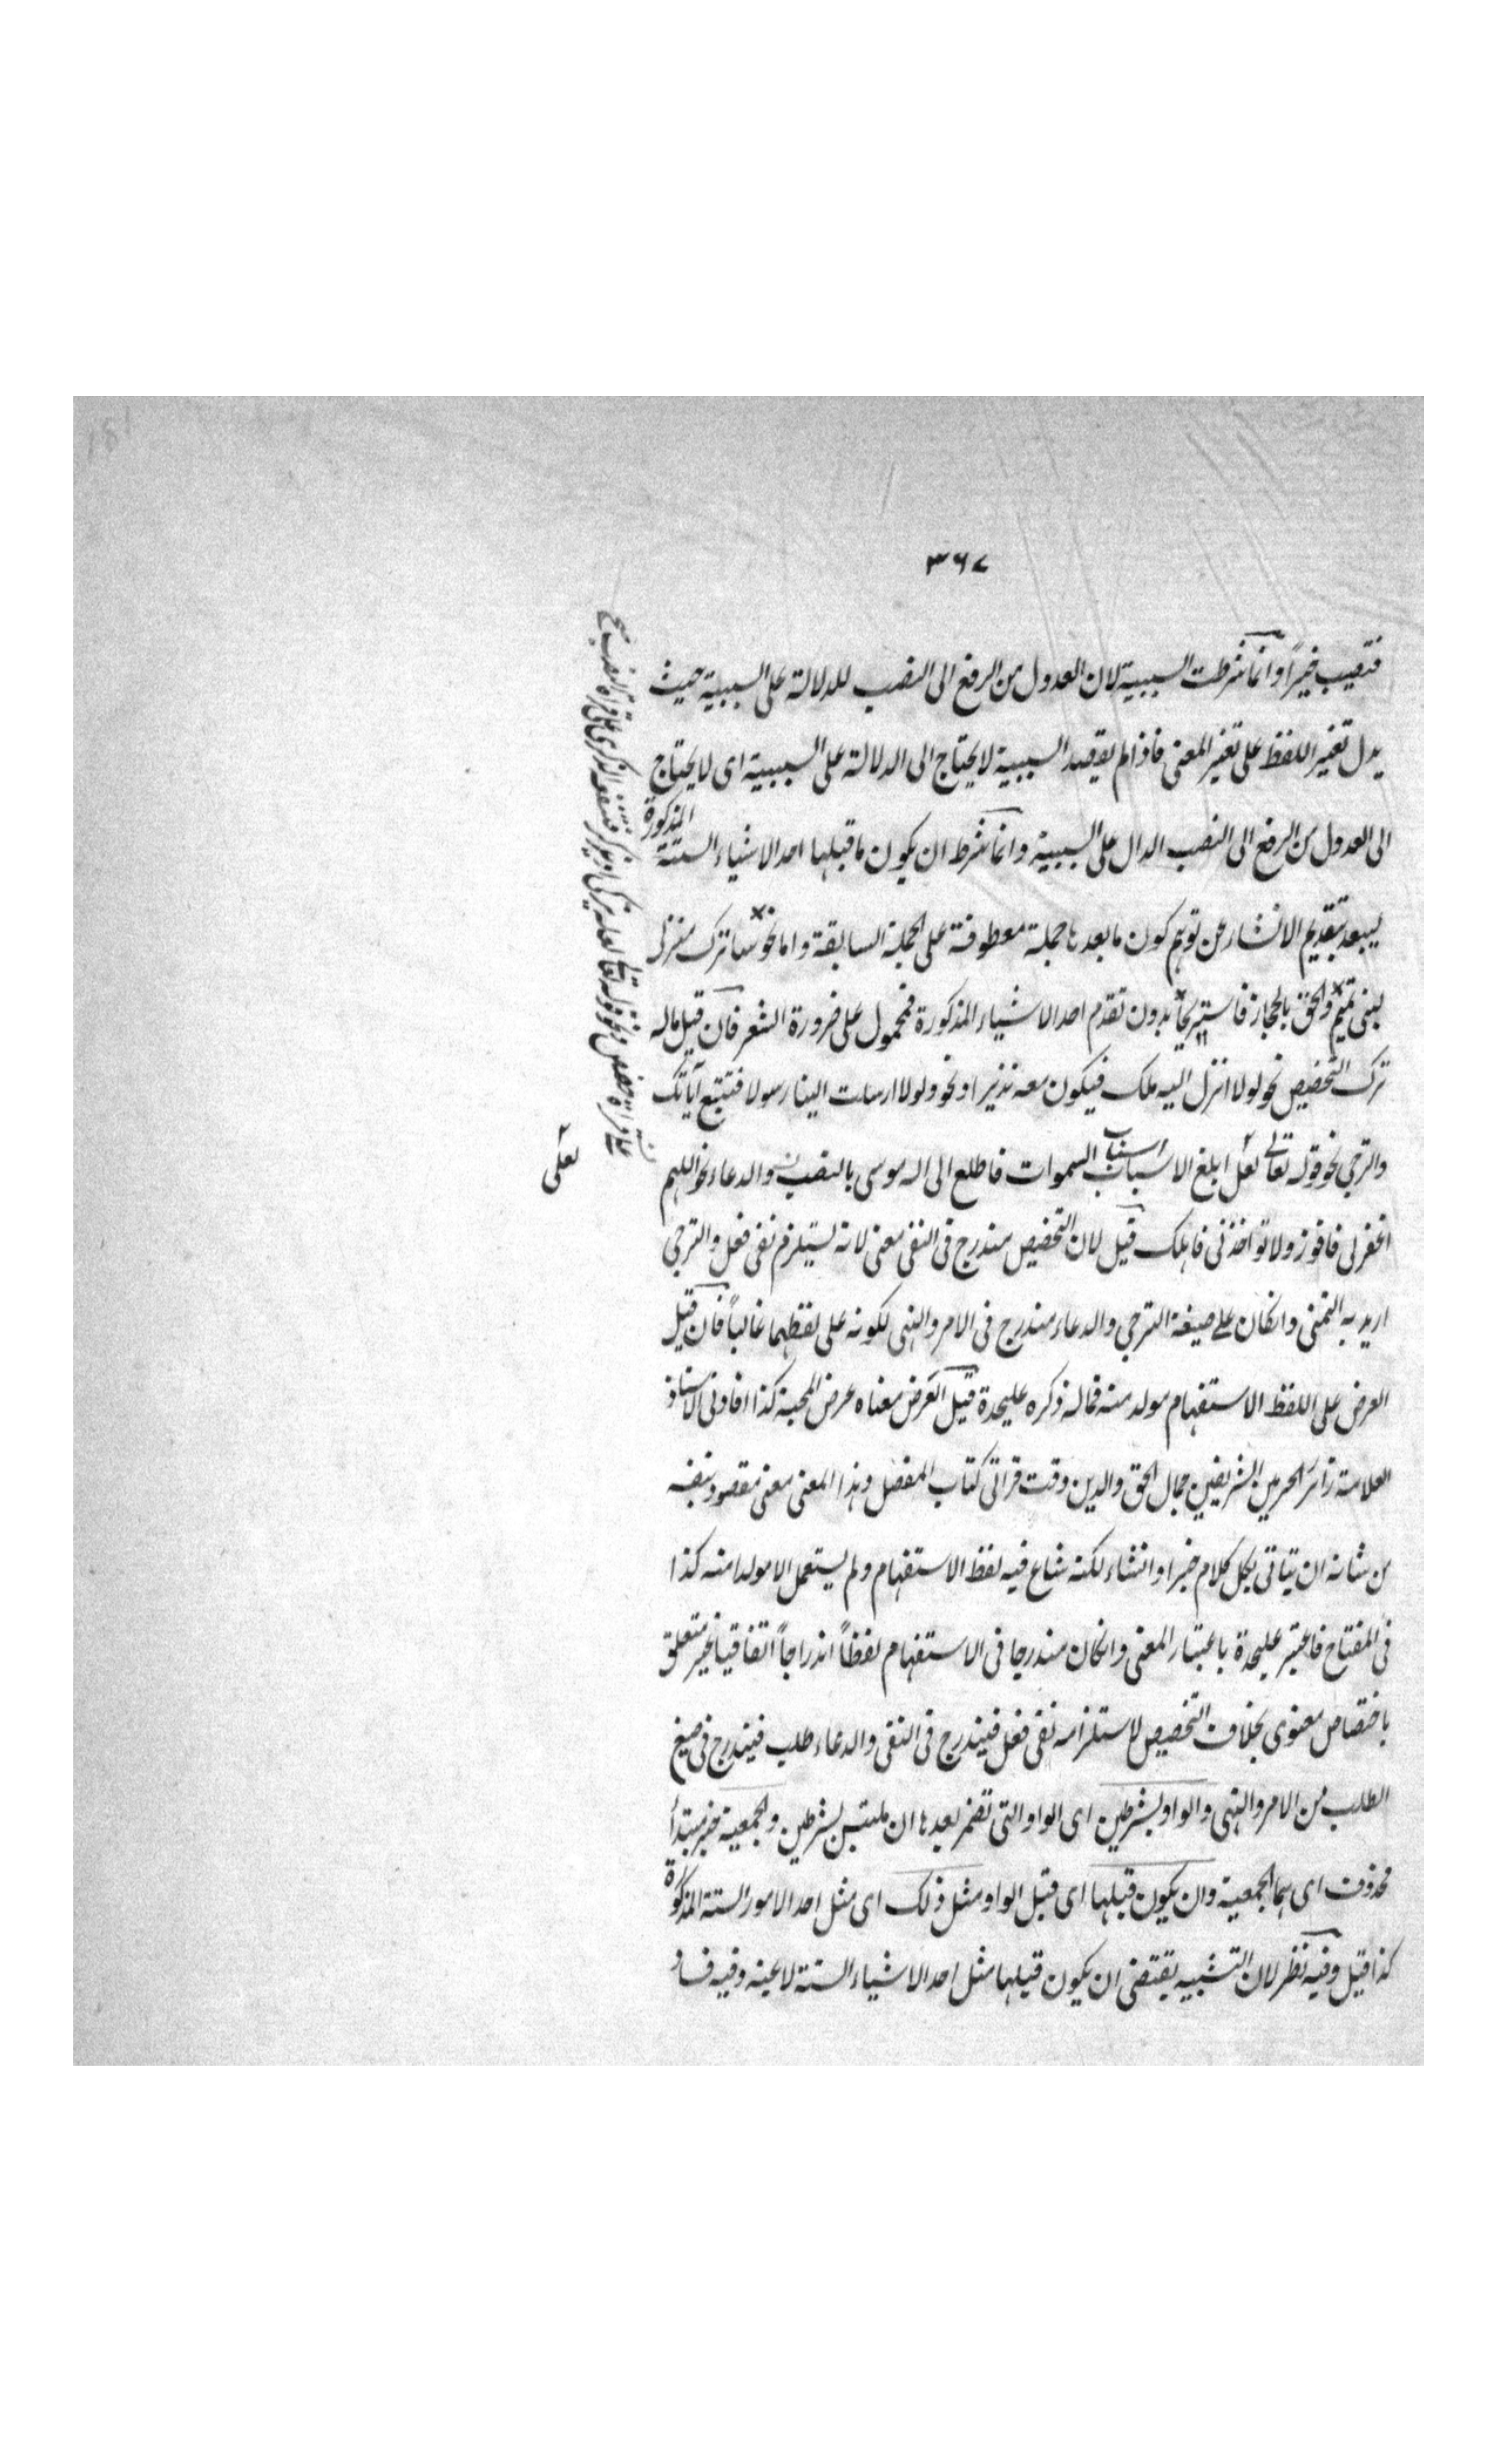 ٣٦٧
فتصيب خيراً وانما شرطت السببية لان العدول من الرفع الى النصب للدلالة على السببية حيث
يدل تغير اللفظ على تغير المعنى فاذا لم يقصد السببية لا يحتاج الى الدلالة على السببية اى لا يحتاج
الى العدول من الرفع الى النصب الدال على السببية وانما شرط ان يكون ما قبلها احد الاشياء الستة المذكورة
ليبعد بتقديم الانشاء عن توهم كون ما بعدها جملة معطوفة على الجملة السابقة واما نحو ساترك منزلى
لبنى تميم والحق بالحجاز فاستريحا بدون تقدم احد الاشياء المذكورة فمحمول على ضرورة الشعر فان قيل ماله
ترك التحضيض نحو لولا انزل اليه ملك فيكون معه نذيرا ونحو ولولا ارسلت الينا رسولا فنتبع آياتك
والترجى نحو قوله تعالى لعلى ابلغ الاسباب اسباب السموات فاطلع الى اله موسى بالنصب والدعاء نحو اللهم
اغفر لى فافوز ولا تواخذنى فاهلك قيل لان التحضيض مندرج فى النفى معنى لانه يستلزم نفى فعل والترجى
اريد به التمنى وانكان على صيغة الترجى والدعاء مندرج فى الامر والنهى لكونه على لفظهما غالباً فان قيل
العرض على اللفظ الاستفهام مولد منه فماله ذكره عليحدة قيل العرض معناه عرض المحبة كذا افادنى الاستاذ
العلامة زائر الحرمين الشريفين جمال الحق والدين وقت قراتى كتاب المفصل وهذا المعنى معنى مقصود بنفسه
من شانه ان يتاتى بكل كلام خبرا وانشاء لكنه شاع فيه لفظ الاستفهام ولم يستعمل الا مولدا منه كذا
فى المفتاح فاعتبر عليحدة باعتبار المعنى وانكان مندرجا فى الاستفهام لفظاً اندراجاً اتفاقيا غير متعلق
باختصاص معنوى بخلاف التحضيض لاستلزامه نفى فعل فيندرج فى النفى والدعاء طلب فيندرج فى صيغ
الطلب من الامر والنهى والواو بشرطين اى الواو التى تضمر بعدها ان ملتبس بشرطين والجمعية خبر مبتدأ
محذوف اى هما الجمعية وان يكون قبلها اى قبل الواو مثل ذلك اى مثل احد الامور الستة المذكورة
كذا قيل وفيه نظر لان التشبيه يقتضى ان يكون قبلها مثل احد الاشياء الستة لا عينه وفيه فساد
ونحو قوله تعالى لعله يزكى او يذكر فتنفعه الذكرى على قراءة النصب
لعلى